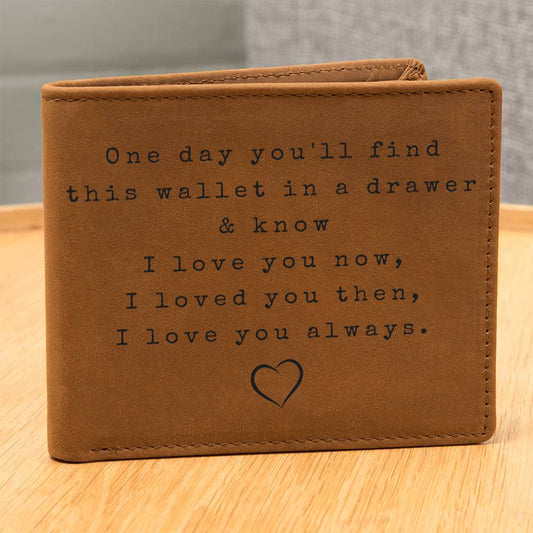 One day you'll find
this wallet in a drawer
& know
I love you now,
I loved you then,
I love you always.